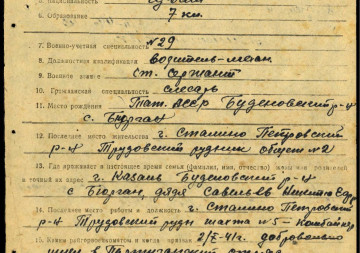 6. Образование 7 кл.
7. Военно-учетная специальность №29
8. Должностная квалификация водитель-мех
9. Военное звание ст. сержант
10. Гражданская специальность слесарь
11. Место рождения Тат. АССР Буденовский р-н
с. Бюрган
12. Последнее место жительства г. Сталино Петровский
р-н Трудовский рудник общеж №2
13. Где проживают в настоящее время семья (фамилия, имя, отчество жены или родителей
и точный их адрес г. Казань Буденовский р-н
с Бюрган, дядя Савельев
14. Последнее место работы и должность г. Сталино Петровский
р-н Трудовский рудн шахта №5 - Комбайнер
15. Каким райгорвоенкоматом и когда призван 2/X-41г. добровольно